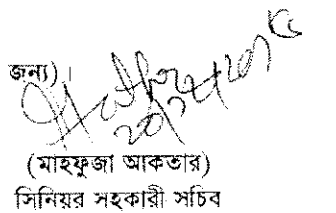 জন্য)।
(মাহফুজা আকতার)
সিনিয়র সহকারী সচিব